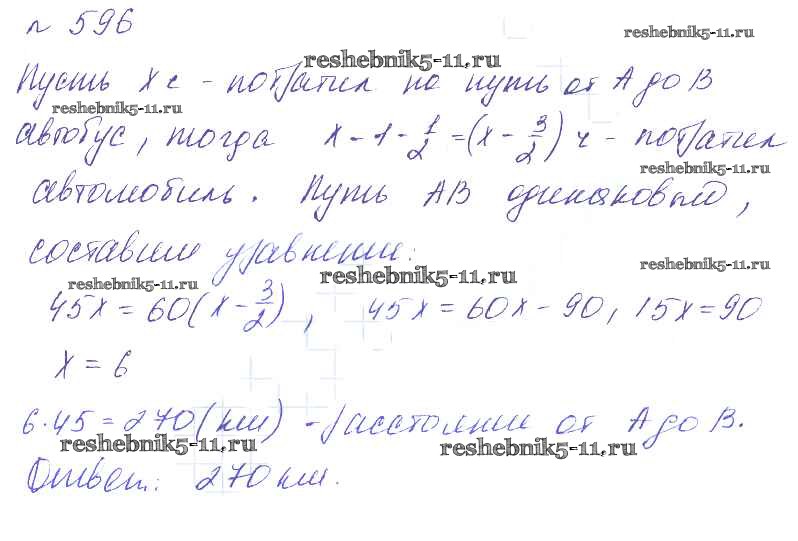 № 596
reshebnik5-11.ru
reshebnik5-11.ru
Пусть х с - потратил на путь от А до В
reshebnik5-11.ru
автобус, тогда x - 1 - 1/2 = (x - 3/2) ч - потратил
reshebnik5-11.ru
автомобиль. Путь АВ одинаковый,
составим уравнение:
reshebnik5-11.ru
reshebnik5-11.ru
reshebnik5-11.ru
45x = 60(x - 3/2), 45x = 60x - 90, 15x = 90
x = 6
6·45 = 270 (км) - расстояние от А до В.
reshebnik5-11.ru
reshebnik5-11.ru
Ответ: 270 км.